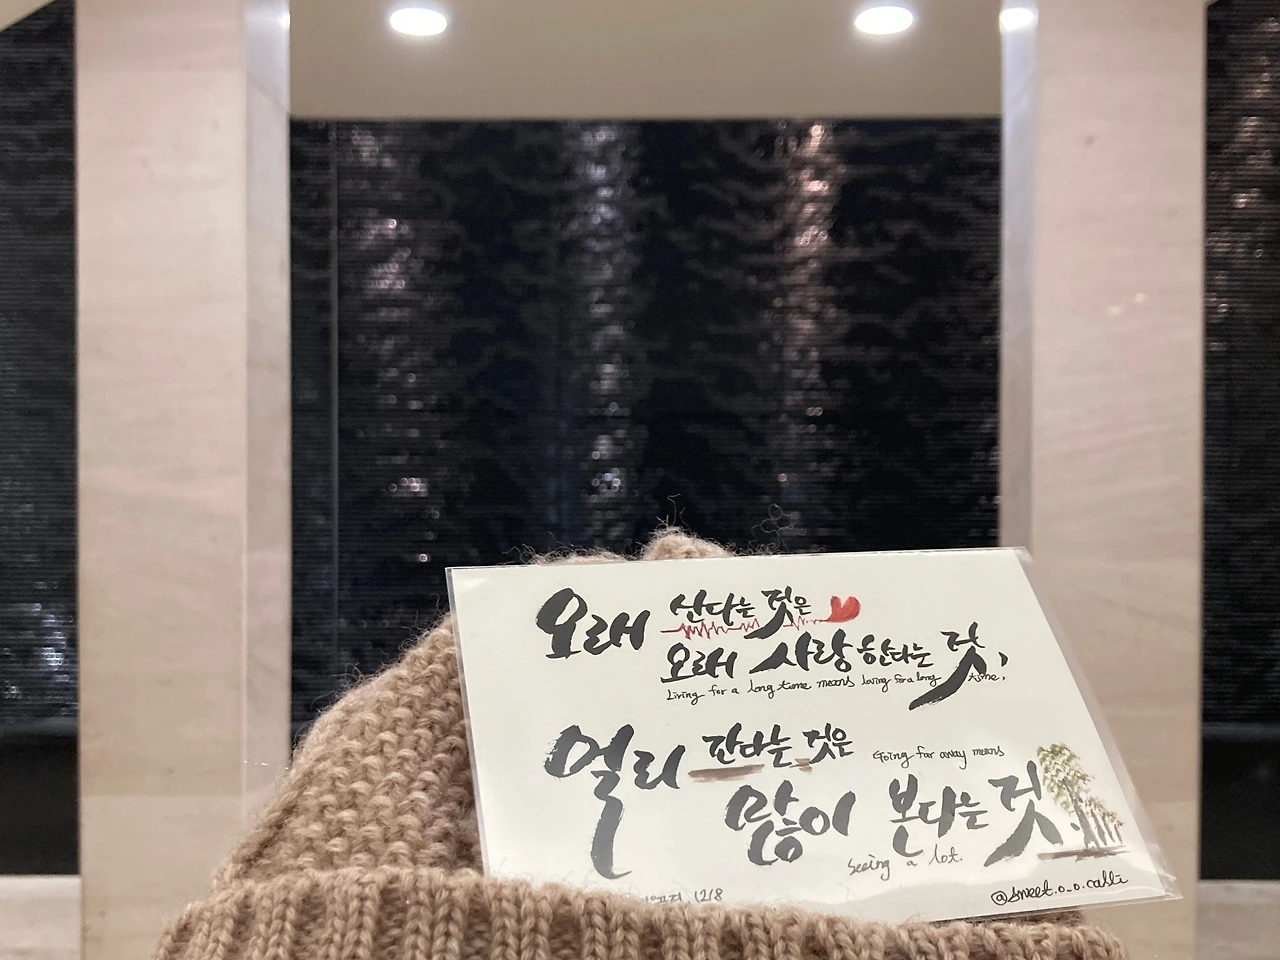 오래 산다는 것은
오래 사랑한다는 것,
Living for a long time means loving for a long time,
멀리 간다는 것은
Going far away means
많이 본다는 것.
seeing a lot.
12/8
@sweet.o_o.calli